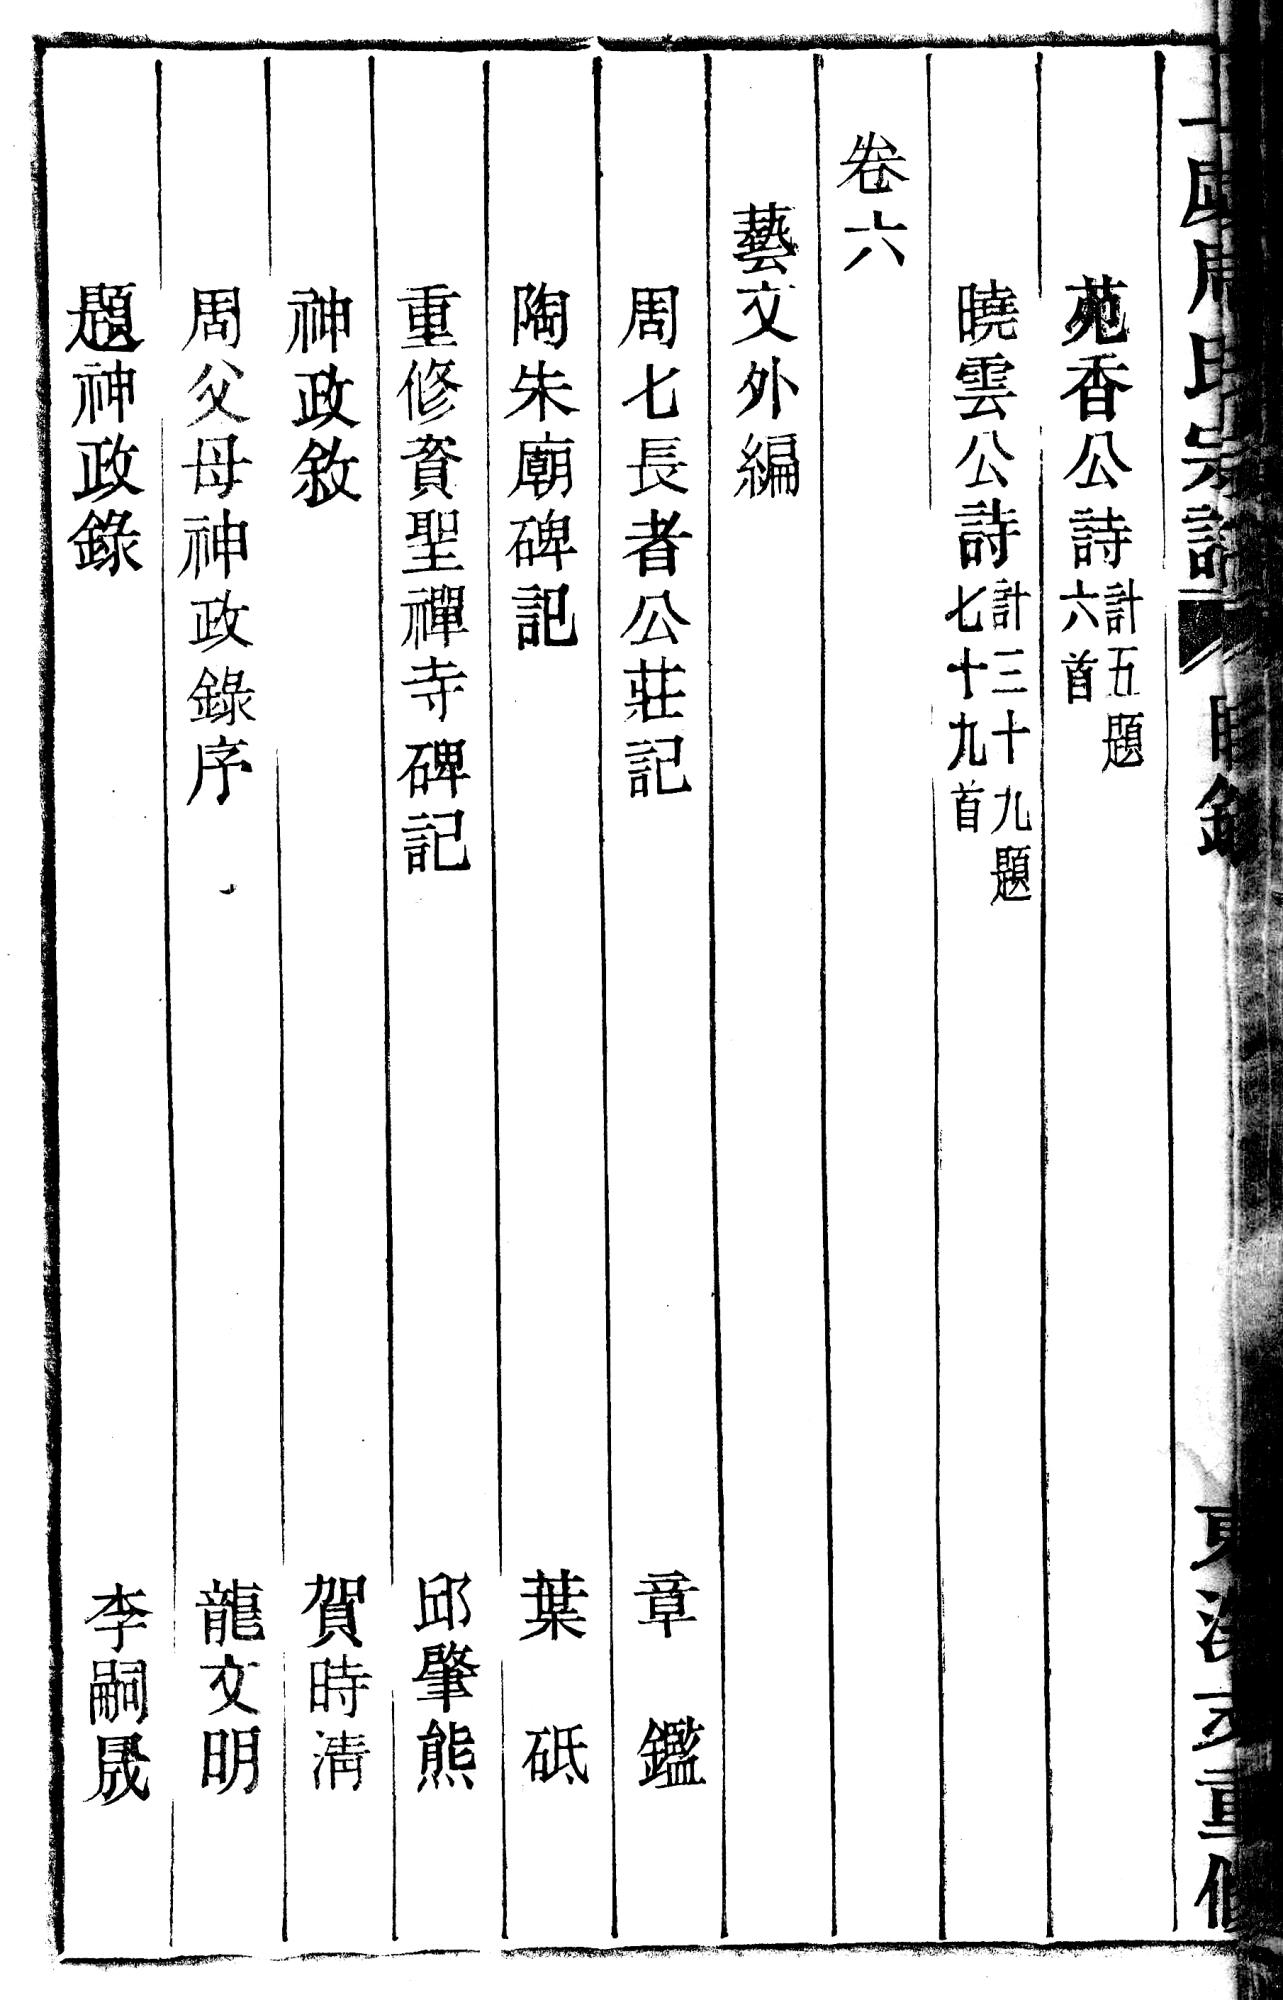 周氏宗譜 目錄 東 支重修
苑香公詩 計五題 六首
曉雲公詩 計三十九題 七十九首
卷六
藝文外編
周七長者公莊記 章鑑
陶朱廟碑記 葉砥
重修資聖禪寺碑記 邱肇熊
神政敘 賀時清
周父母神政錄序 龍文明
題神政錄 李嗣晟